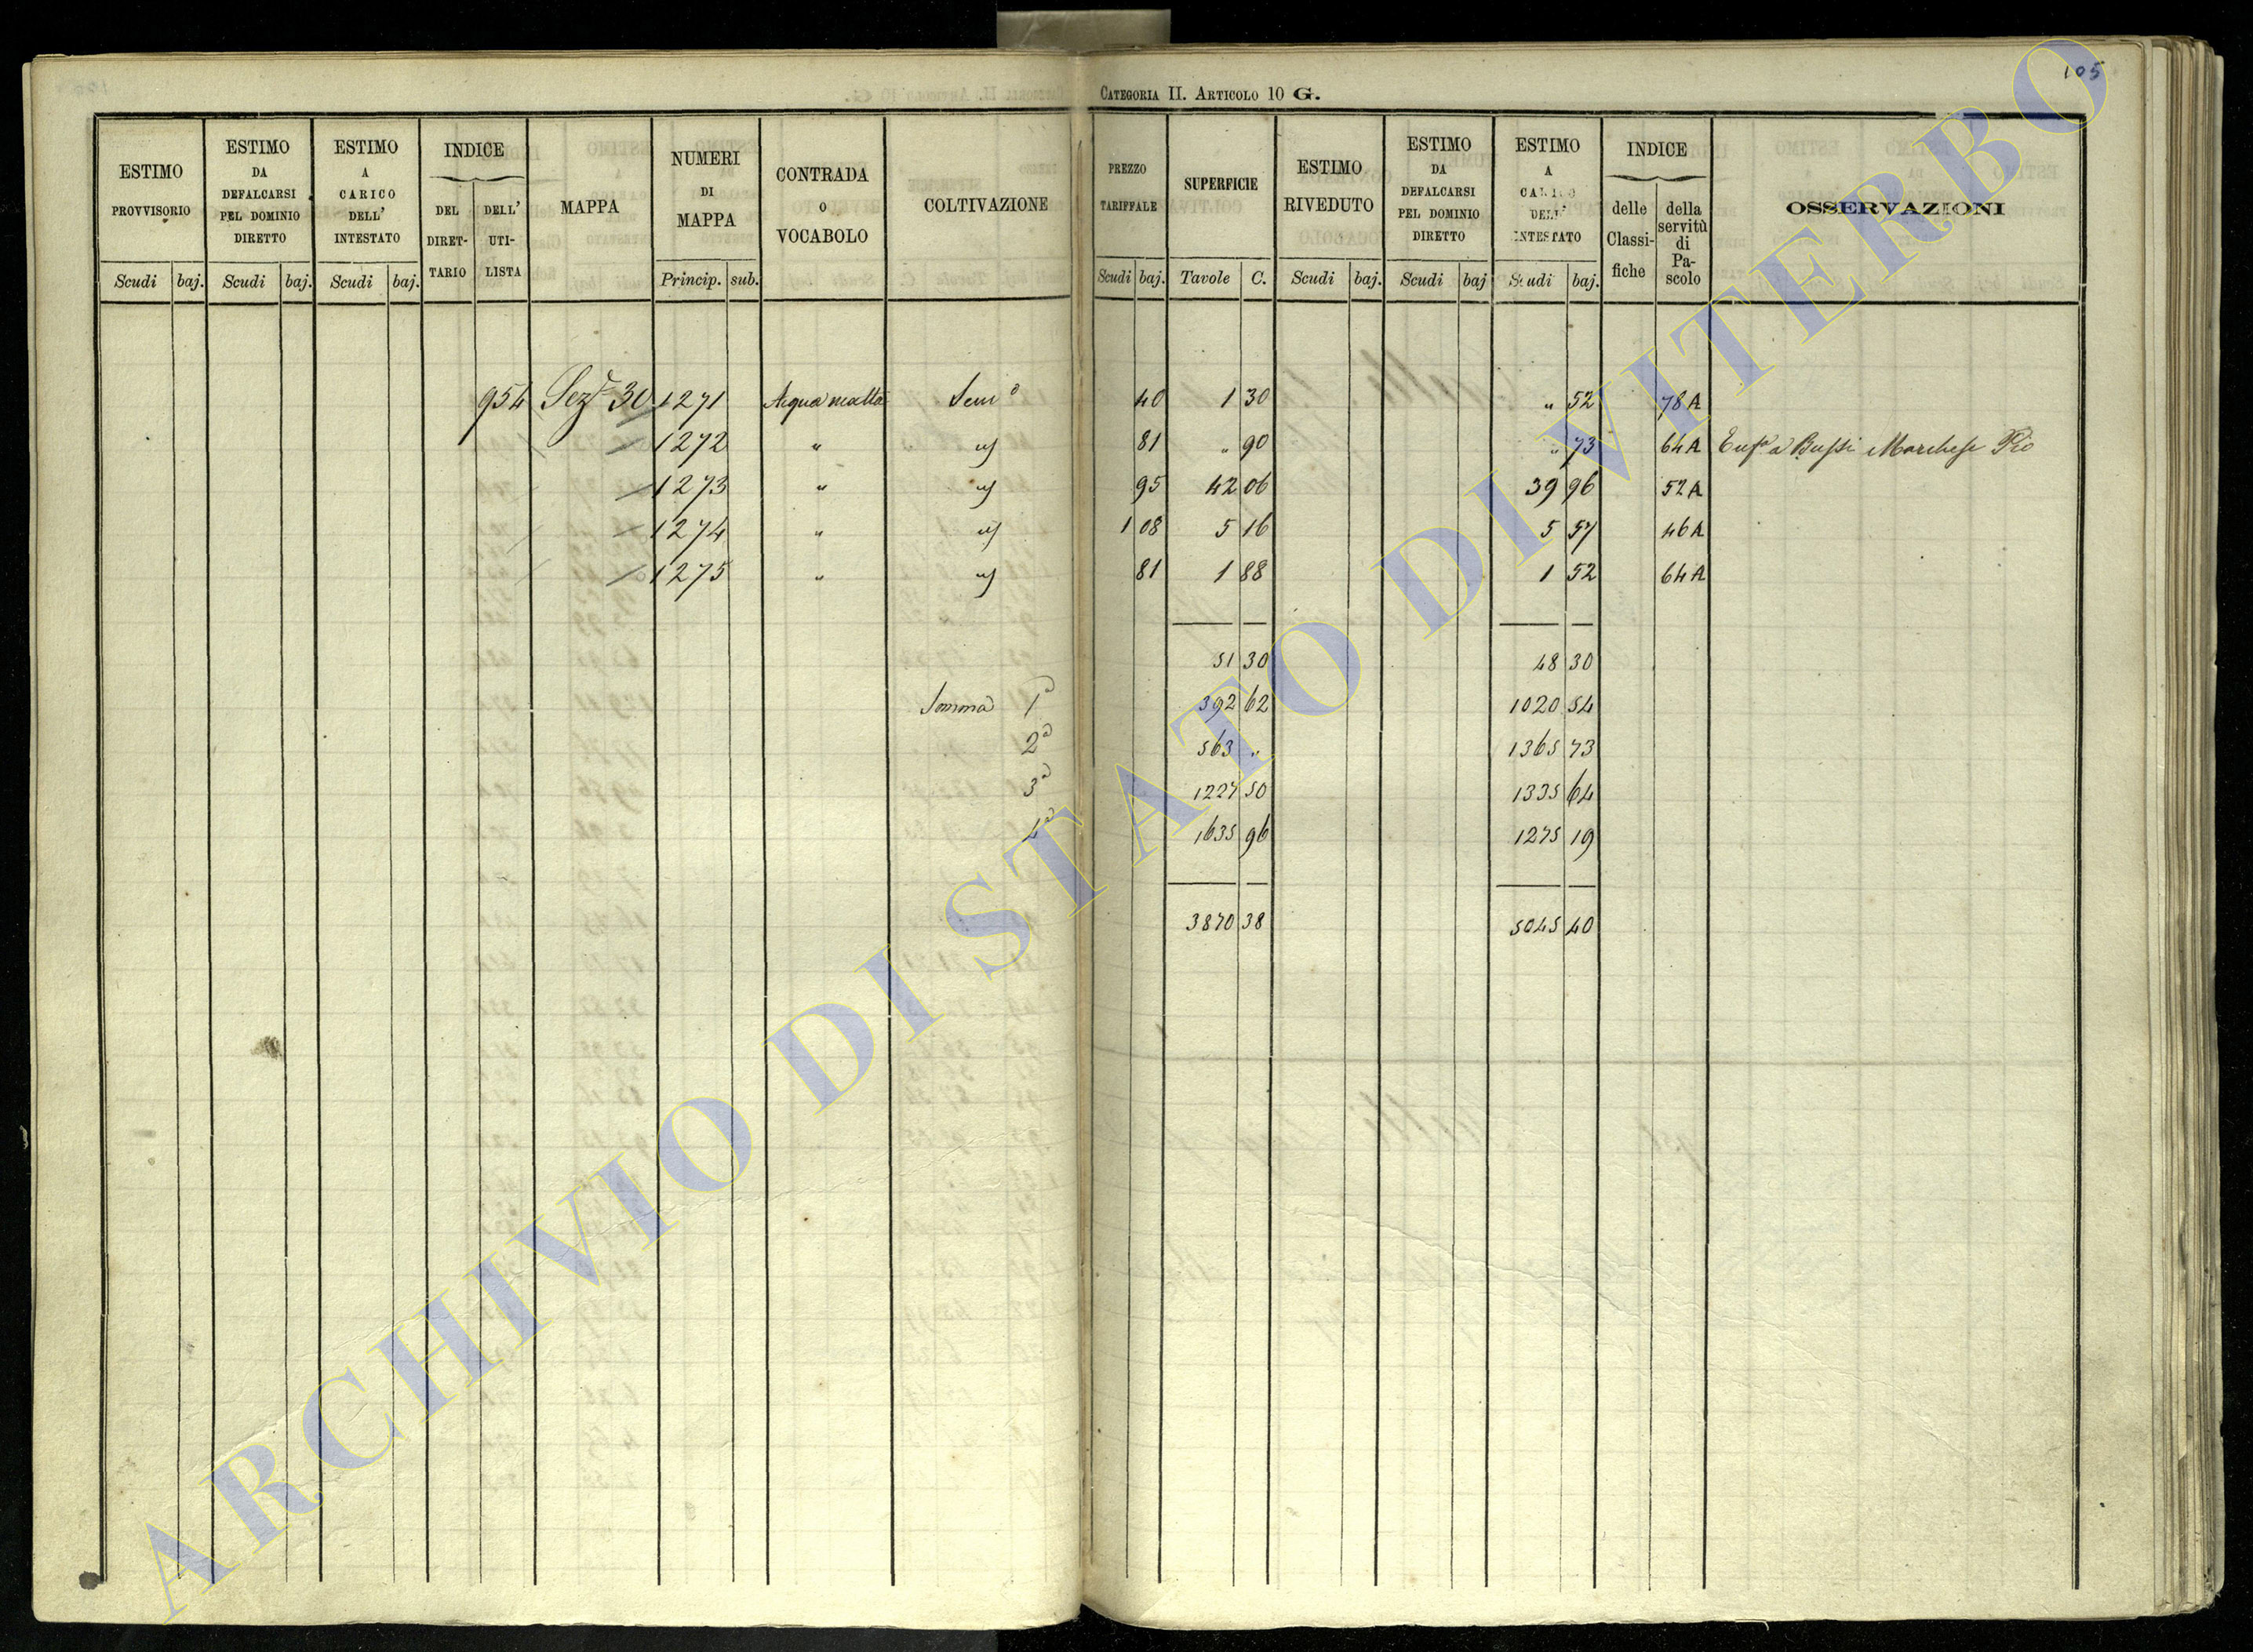 105
CATEGORIA II. ARTICOLO 10 G.
ESTIMO PROVVISORIO Scudi baj.
ESTIMO DA DEFALCARSI PEL DOMINIO DIRETTO Scudi baj.
ESTIMO A CARICO DELL' INTESTATO Scudi baj.
INDICE DEL DIRET-TARIO DELL' UTI-LISTA
MAPPA
NUMERI DI MAPPA Princip. sub.
CONTRADA O VOCABOLO
COLTIVAZIONE
PREZZO TARIFFALE Scudi baj.
SUPERFICIE Tavole C.
ESTIMO RIVEDUTO Scudi baj.
ESTIMO DA DEFALCARSI PEL DOMINIO DIRETTO Scudi baj
ESTIMO A CARICO DELL' INTESTATO Scudi baj.
INDICE delle Classi-fiche della servitù di Pa-scolo
OSSERVAZIONI
954 Sez.e 30 1271 Acqua matta Sem° 40 1 30 " 52 78A
1272 " 81 " 90 " 73 64A Bussi Marchese Pio
1273 " 95 42 06 39 96 52A
1274 " 1 08 5 16 5 57 46A
1275 " 81 1 88 1 52 64A
51 30 48 30
Somma 1a 392 62 1020 54
2a 563 " 1365 73
3a 1227 50 1335 64
4a 1635 96 1275 19
3870 38 5045 40
ARCHIVIO DI STATO DI VITERBO